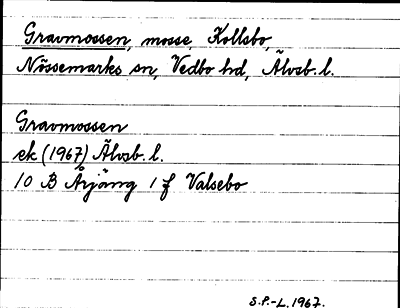 Gravmossen, mosse, Kollsbo,
Nössemarks sn, Vedbo hd, Älvsb. l.
Gravmossen
ek (1967) Älvsb. l.
10 B Årjäng 1 f Valsebo
S.P.-L. 1967.